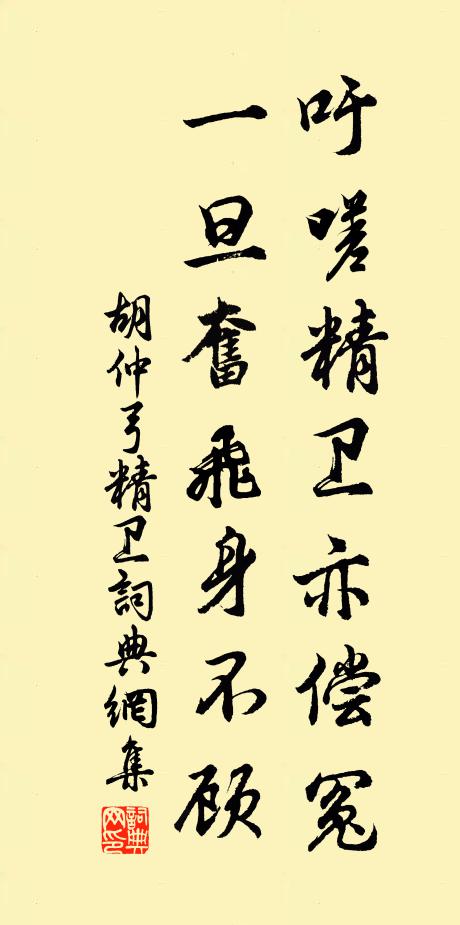 吁嗟精卫亦偿冤
一旦奮飛身不顾
胡仲弓精卫詞典網集
詞典
网印